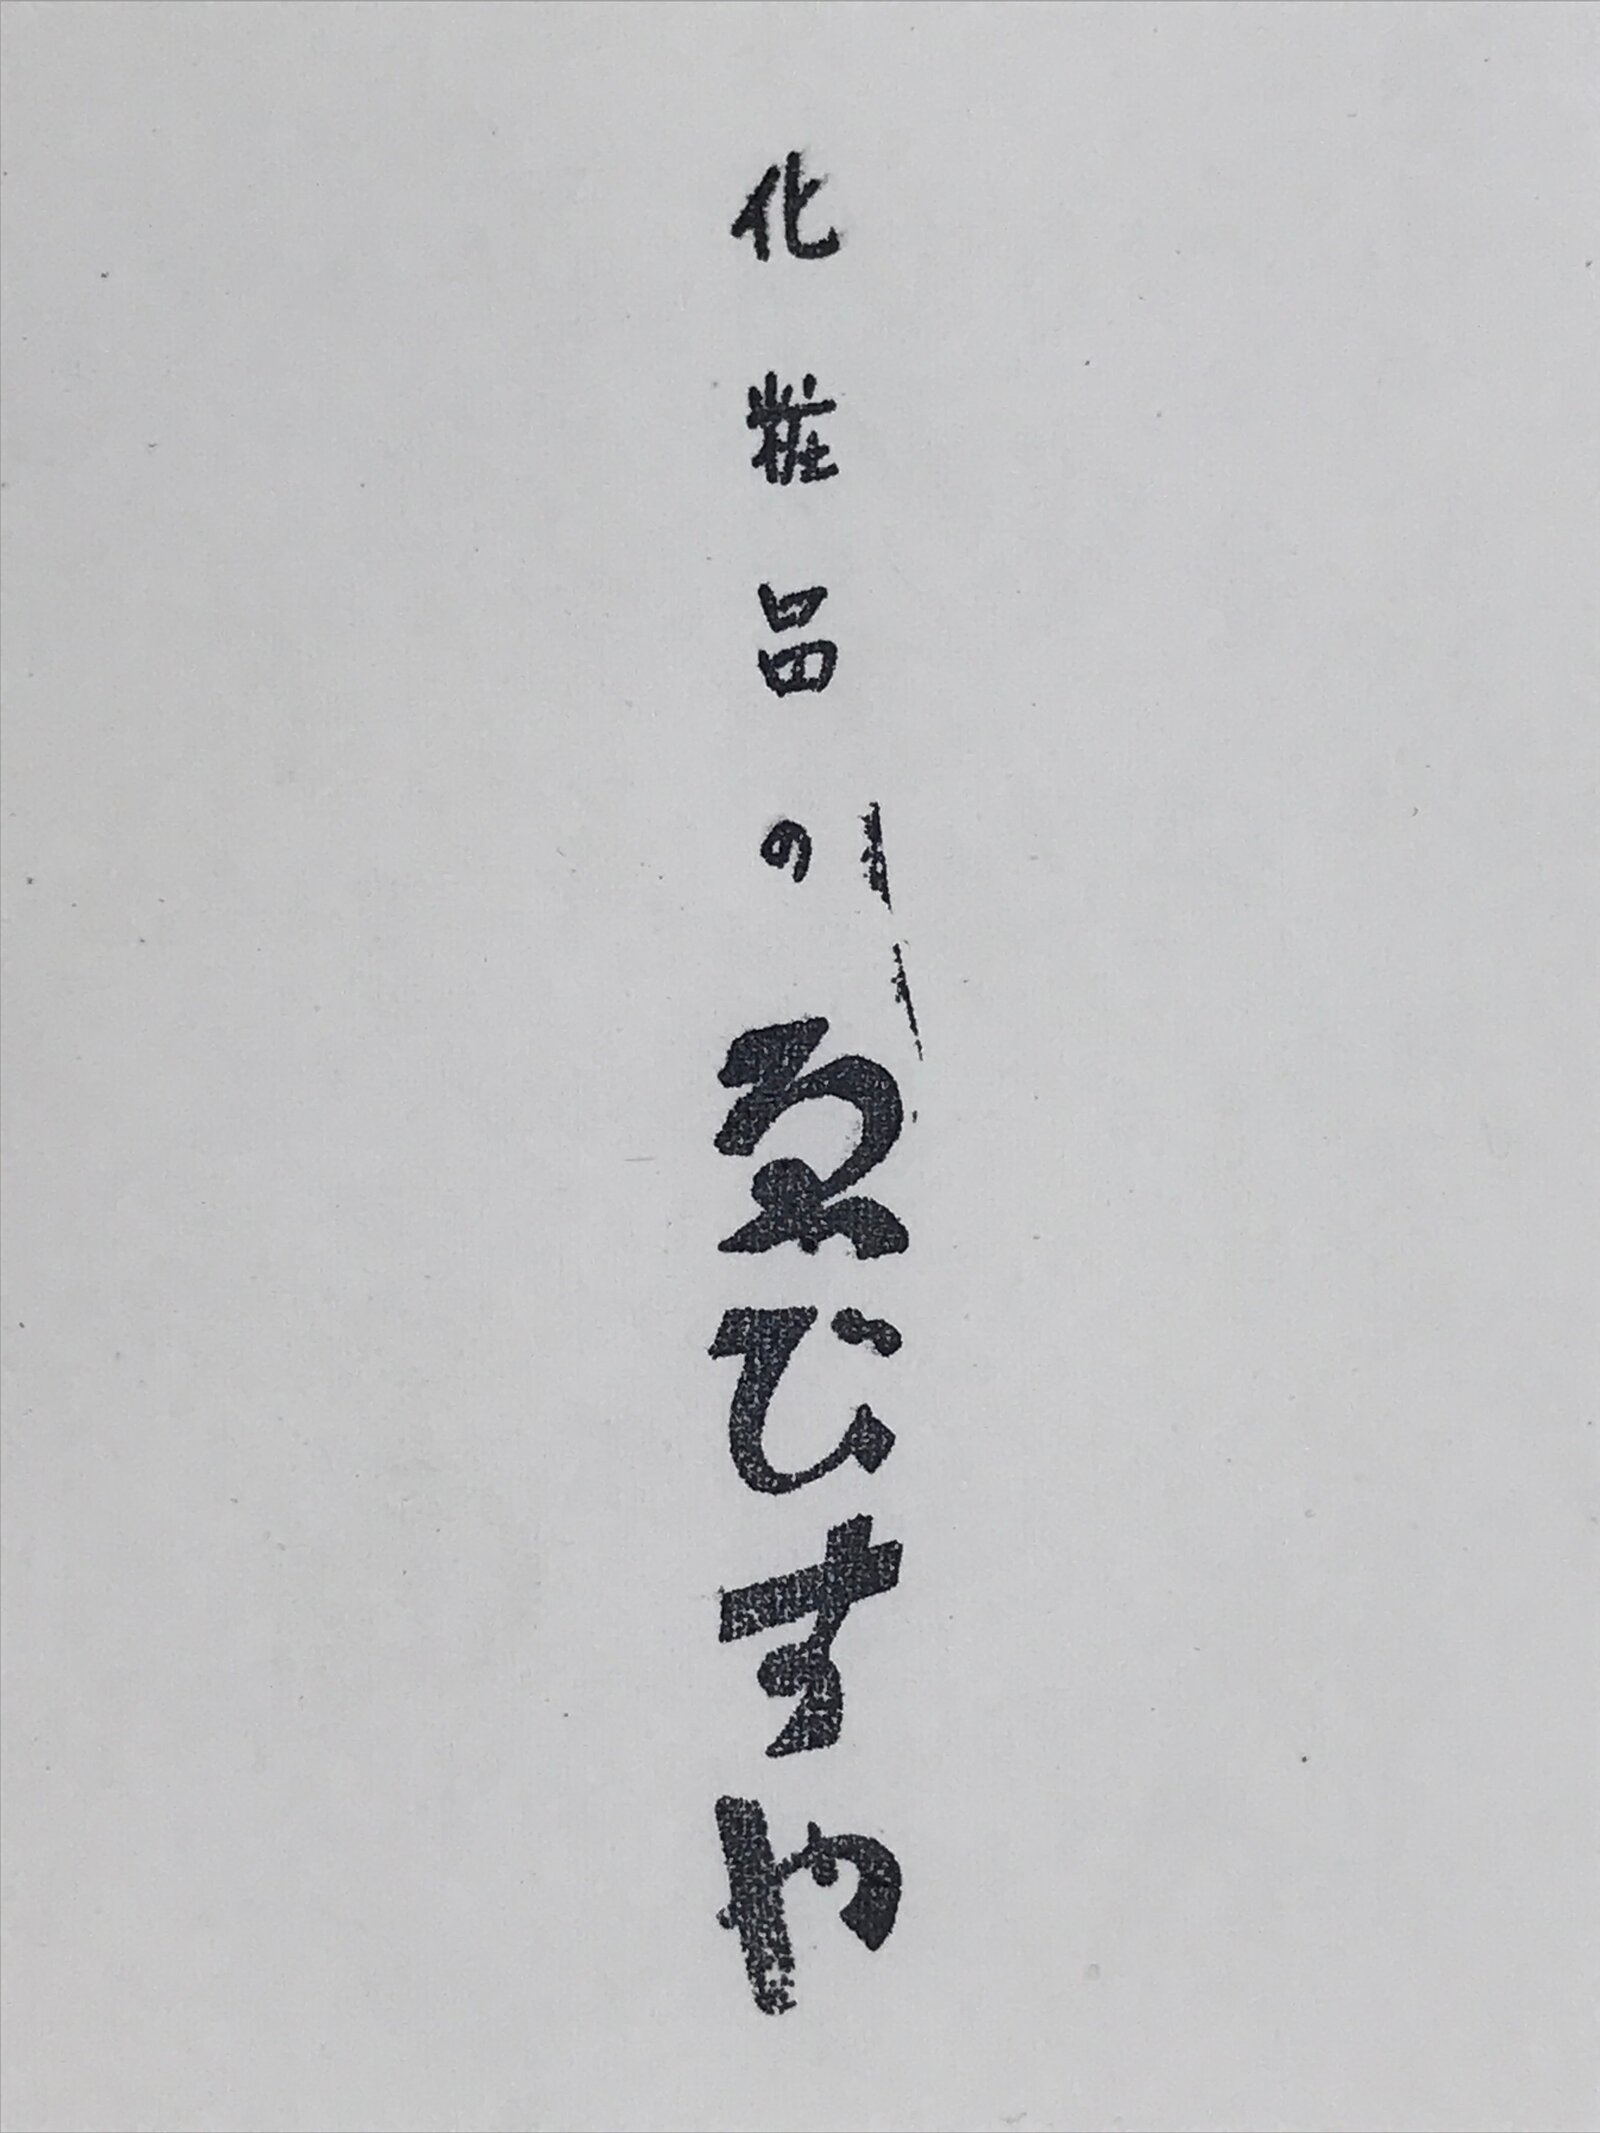 化粧品のゑびすや